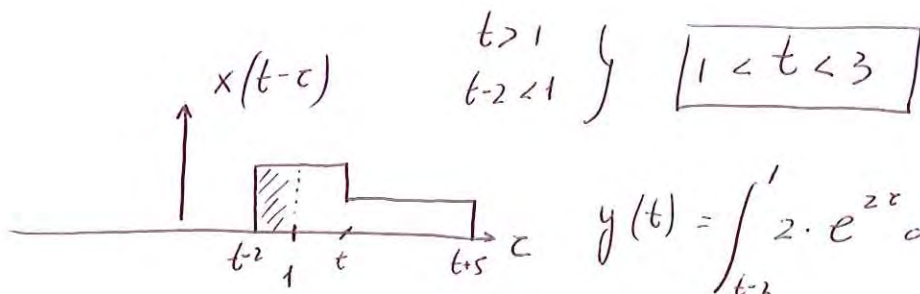 x(t-τ)
t>1
t-2<1
1 < t < 3
t-2 1 t t+5 τ
y(t) = ∫_{t-2}^{1} 2 · e^{2τ}